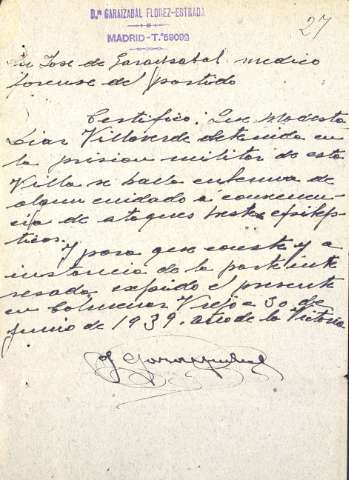 Dn GARAIZABAL FLOREZ-ESTRADA
MADRID-T.º 59093
27
Dn Jose de Garaizabal medico
forense del partido
Certifico: Que Modesta
Diaz Villaverde detenida en
la prision militar de esta
Villa se halla enferma de
algun cuidado a consecuen-
cia de ataques epilep-
ticos.
Y para que conste y a
instancia de la parte inte
resada, expido el presente
en Colmenar Viejo a 30 de
Junio de 1939. año de la Victoria
J Garaizabal